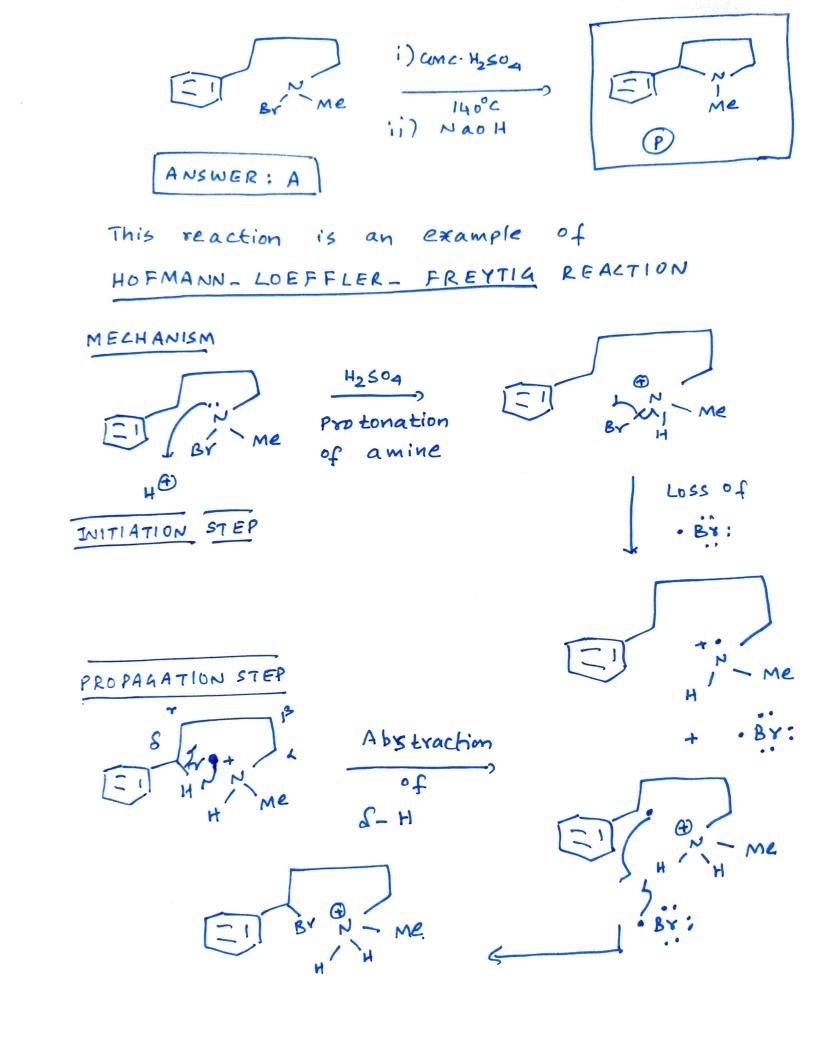 i) conc. H2SO4
140°C
ii) NaOH
N
Br
Me
N
Me
P
ANSWER : A
This reaction is an example of
HOFMANN- LOEFFLER- FREYTIG REACTION
MECHANISM
N
Br
Me
H⊕
H2SO4
Protonation
of amine
⊕
N
Br
H
Me
INITIATION STEP
Loss of
·Br:
+·
N
H
Me
+ ·Br:
PROPAGATION STEP
δ
γ
β
α
H
N
+
H
Me
Abstraction
of
δ-H
⊕
N
H
H
Me
·Br:
Br
⊕
N
H
H
Me